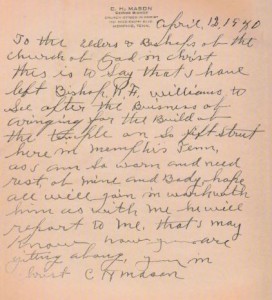 C. H. MASON
SENIOR BISHOP
MEMPHIS, TENN.
April, 12, 1940
To the elders & Bishops of the
church of God in christ
this is to say that I have
left Bishop, R, F, Williams, to
see after the Buisness of
for the Build at
the on So fift Street
here in Memphis Tenn,
as I am so worn and need
rest of mine and Body, hope
all will join in with
him as with me he will
report to me. that I may
know how you are
giting along, you in
christ C H Mason